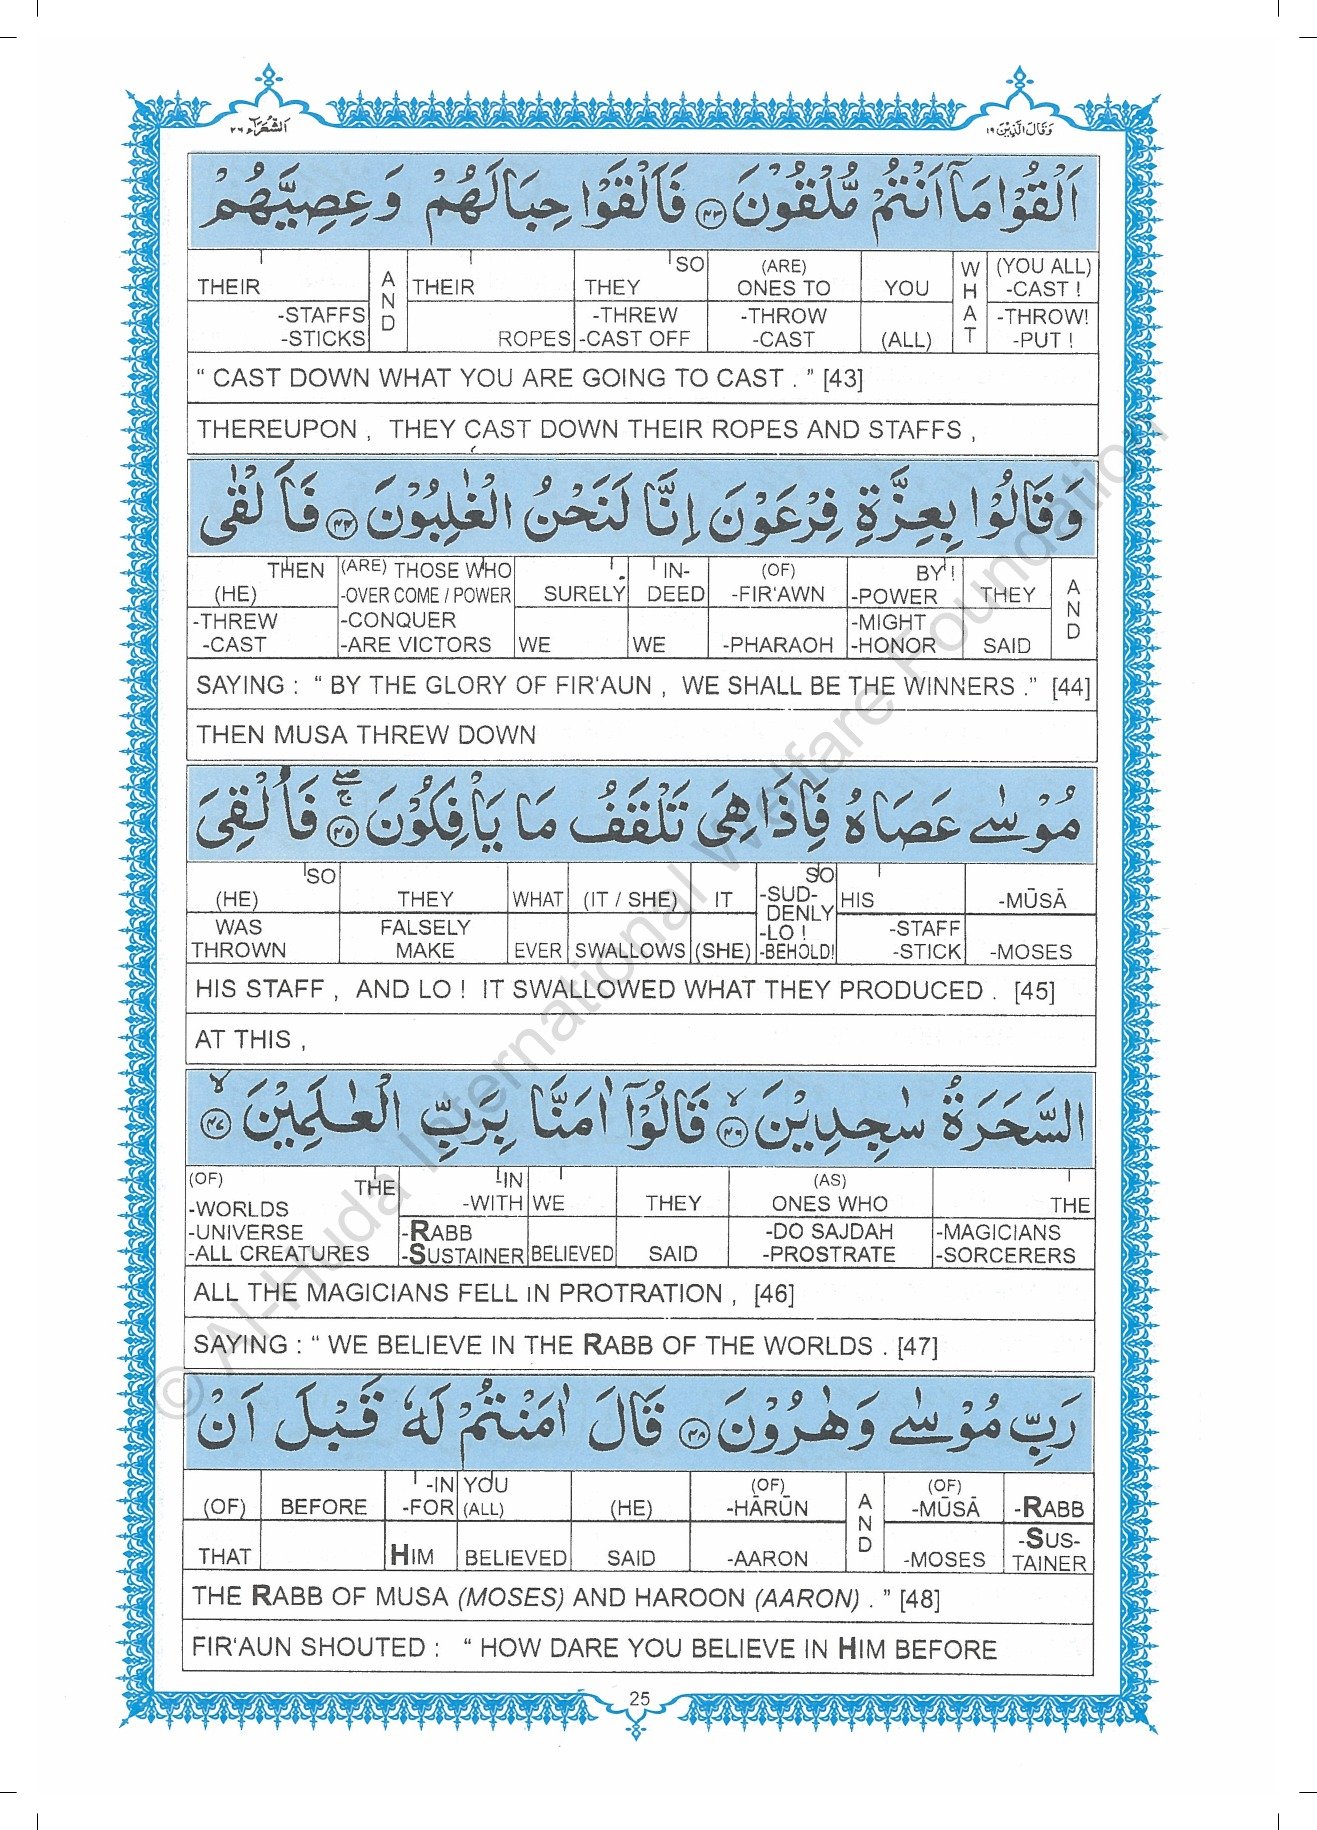 وَقَالَ الَّذِيْنَ ١٩
اَلشُّعَرَآء ٢٦
اَلْقُوْا مَاۤ اَنْتُمْ مُّلْقُوْنَ ﴿٤٣﴾ فَاَلْقَوْا حِبَالَهُمْ وَ عِصِيَّهُمْ
THEIR AND THEIR THEY SO (ARE) ONES TO YOU WHAT (YOU ALL) -CAST !
-STAFFS -STICKS ROPES -THREW -CAST OFF -THROW -CAST (ALL) -THROW! -PUT !
“ CAST DOWN WHAT YOU ARE GOING TO CAST . ” [43]
THEREUPON , THEY CAST DOWN THEIR ROPES AND STAFFS ,
وَ قَالُوْا بِعِزَّةِ فِرْعَوْنَ اِنَّا لَنَحْنُ الْغٰلِبُوْنَ ﴿٤٤﴾ فَاَلْقٰى
THEN (HE) (ARE) THOSE WHO -OVER COME / POWER SURELY IN-DEED (OF) -FIR‘AWN BY ! -POWER THEY AND
-THREW -CAST -CONQUER -ARE VICTORS WE WE -PHARAOH -MIGHT -HONOR SAID
SAYING : “ BY THE GLORY OF FIR‘AUN , WE SHALL BE THE WINNERS .” [44]
THEN MUSA THREW DOWN
مُوْسٰى عَصَاهُ فَاِذَا هِىَ تَلْقَفُ مَا يَاْفِكُوْنَ ﴿٤٥﴾ فَاُلْقِىَ
SO (HE) THEY WHAT (IT / SHE) IT SO -SUD-DENLY HIS -MŪSĀ
WAS THROWN FALSELY MAKE EVER SWALLOWS (SHE) -LO ! -BEHOLD! -STAFF -STICK -MOSES
HIS STAFF , AND LO ! IT SWALLOWED WHAT THEY PRODUCED . [45]
AT THIS ,
السَّحَرَةُ سٰجِدِيْنَ ﴿٤٦﴾ قَالُوْۤا اٰمَنَّا بِرَبِّ الْعٰلَمِيْنَ ﴿٤٧﴾
(OF) THE -WORLDS -IN -WITH WE THEY (AS) ONES WHO THE
-UNIVERSE -ALL CREATURES -RABB -SUSTAINER BELIEVED SAID -DO SAJDAH -PROSTRATE -MAGICIANS -SORCERERS
ALL THE MAGICIANS FELL IN PROTRATION , [46]
SAYING : “ WE BELIEVE IN THE RABB OF THE WORLDS . [47]
رَبِّ مُوْسٰى وَ هٰرُوْنَ ﴿٤٨﴾ قَالَ اٰمَنْتُمْ لَهٗ قَبْلَ اَنْ
(OF) BEFORE -IN -FOR YOU (ALL) (HE) (OF) -HĀRŪN AND (OF) -MŪSĀ -RABB
THAT HIM BELIEVED SAID -AARON -MOSES -SUS-TAINER
THE RABB OF MUSA (MOSES) AND HAROON (AARON) . ” [48]
FIR‘AUN SHOUTED : “ HOW DARE YOU BELIEVE IN HIM BEFORE
25
© Al-Huda International Welfare Foundation